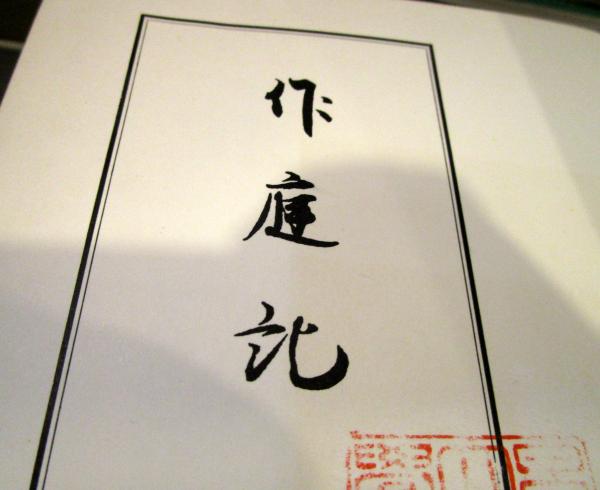 作庭記